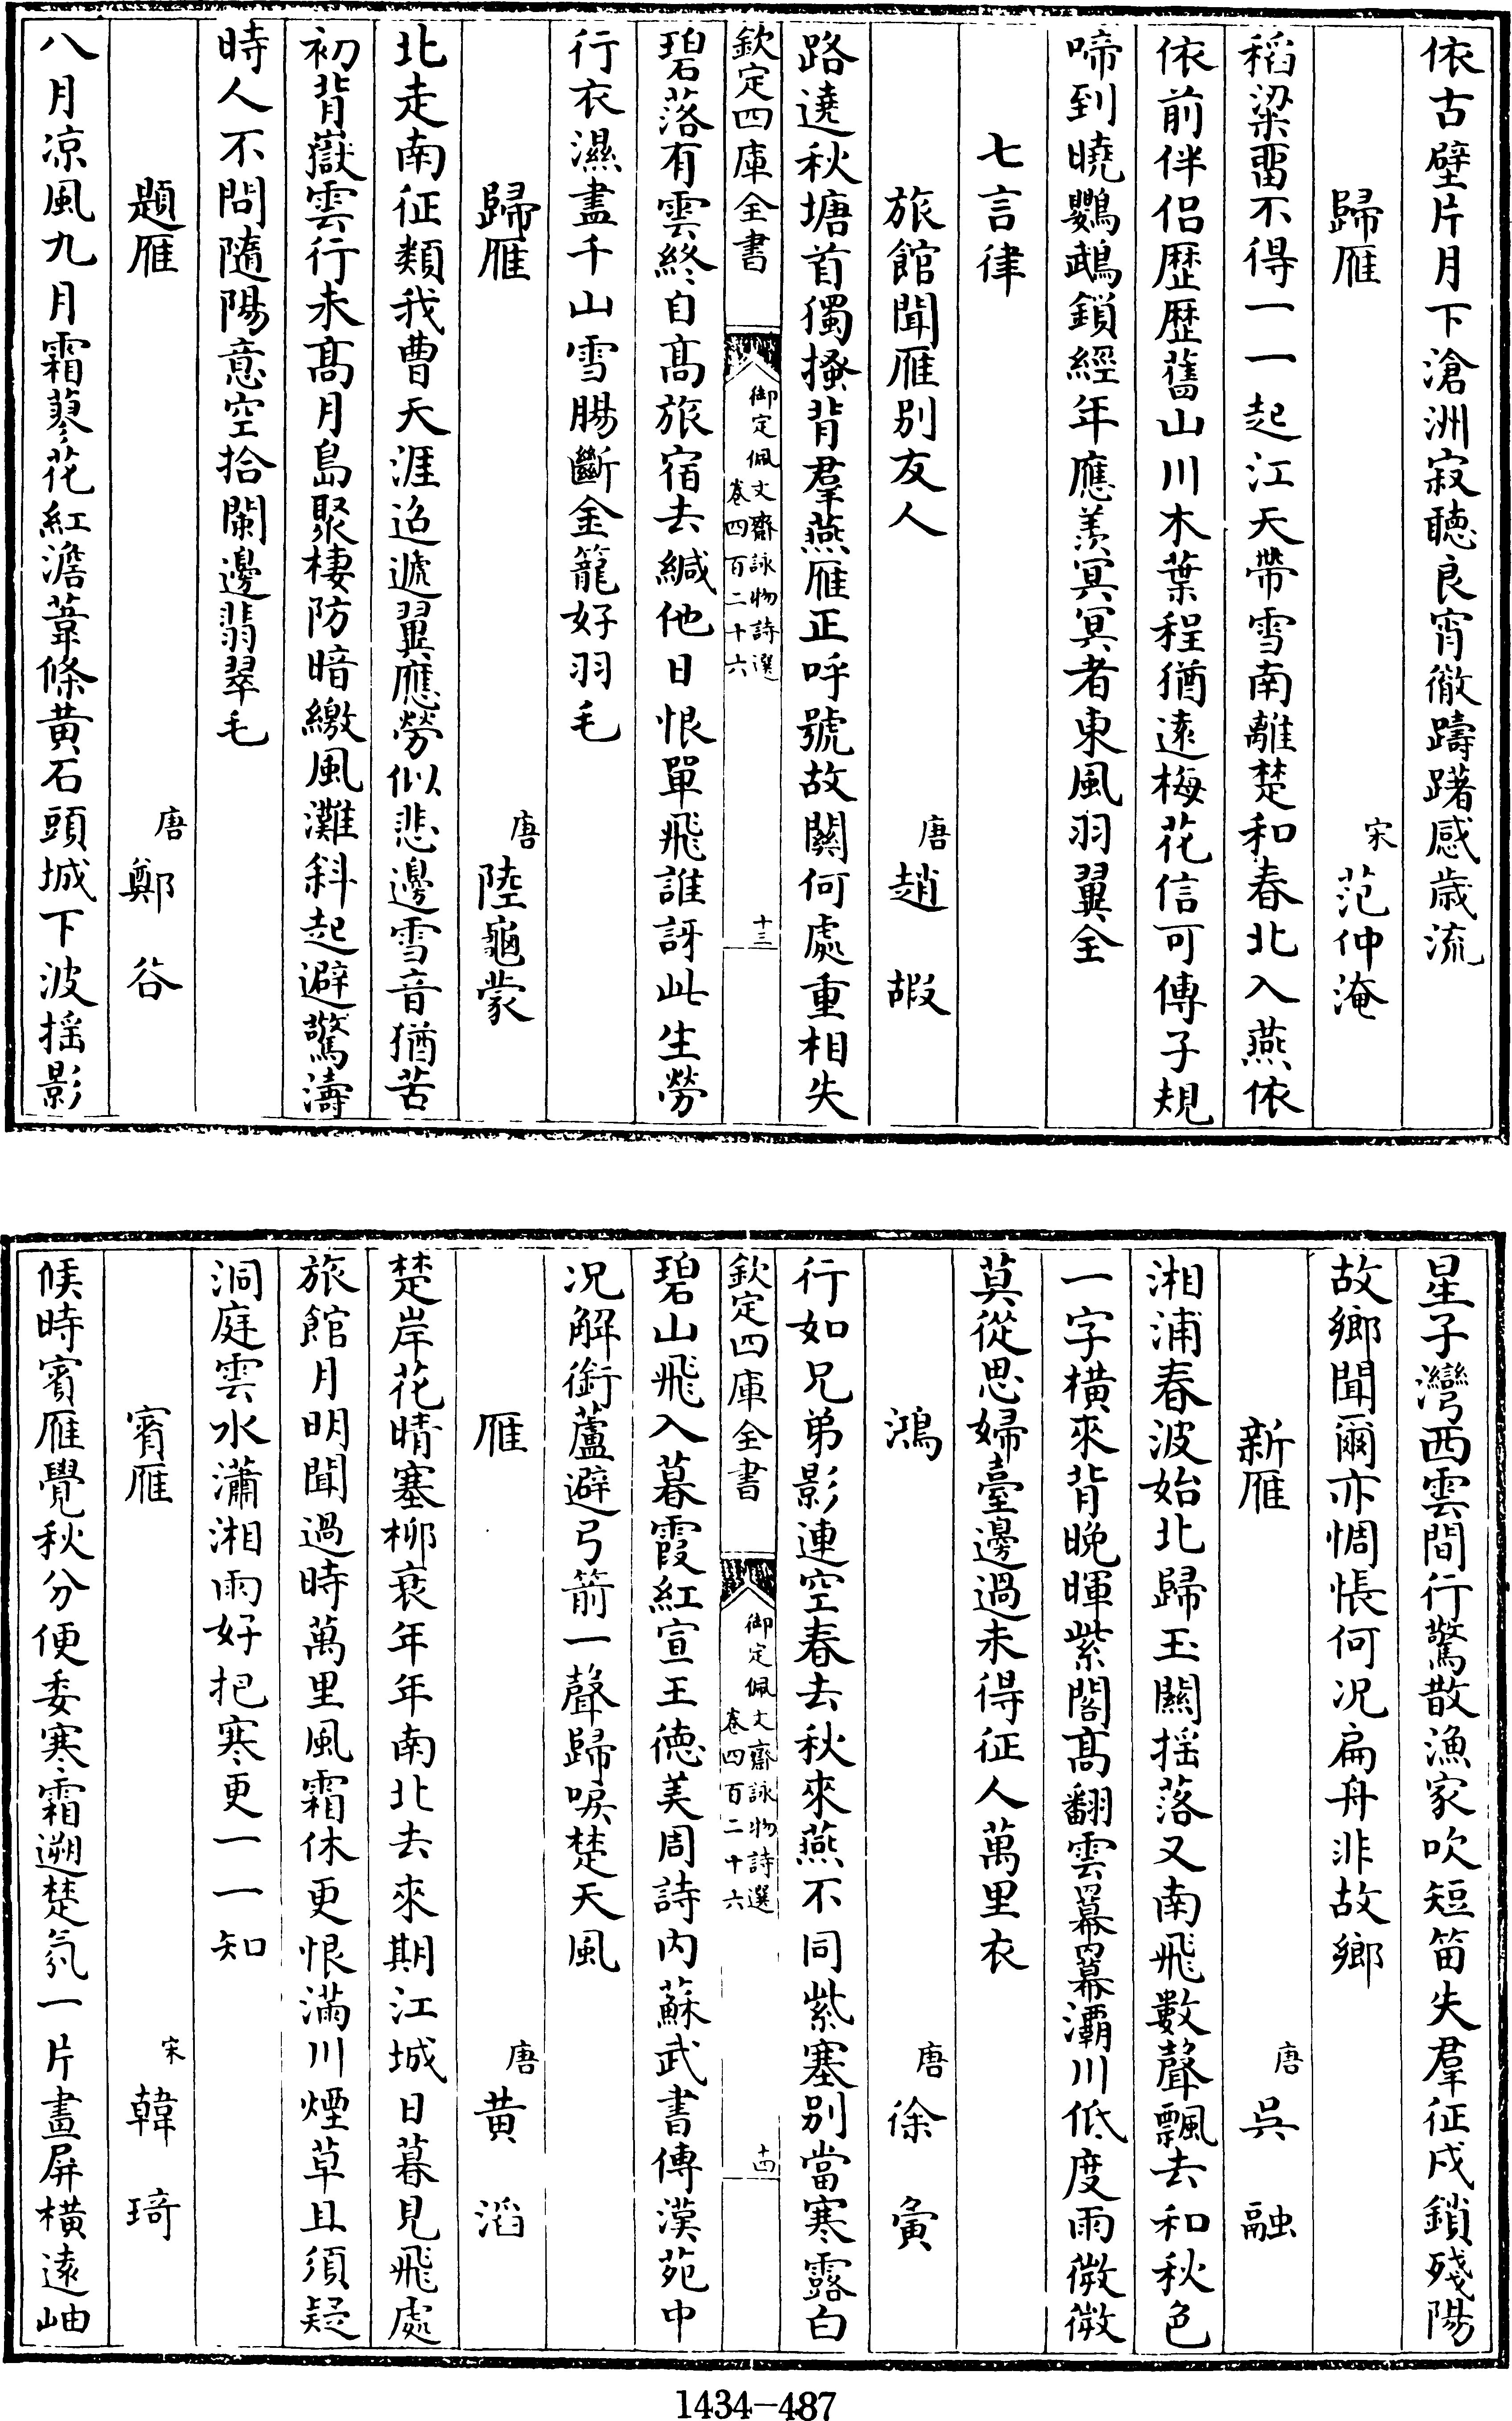 依古壁片月下滄洲寂聽良宵徹躊躇感歲流
歸雁 宋 范仲淹
稻粱畱不得一一起江天帶雪南離楚和春北入燕依
依前伴侶歴歴舊山川木葉程猶遠梅花信可傳子規
啼到曉鸚鵡鎖經年應羨冥冥者東風羽翼全
七言律
旅館聞雁别友人 唐 趙嘏
路遶秋塘首獨搔背羣燕雁正呼號故關何處重相失
欽定四庫全書 御定佩文齋詠物詩選 卷四百二十六 十三
碧落有雲終自髙旅宿去緘他日恨單飛誰訝此生勞
行衣濕盡千山雪腸斷金籠好羽毛
歸雁 唐 陸龜蒙
北走南征類我曹天涯迢遞翼應勞似悲邊雪音猶苦
初背嶽雲行未髙月島聚棲防暗繳風灘斜起避驚濤
時人不問隨陽意空拾闌邊翡翠毛
題雁 唐 鄭谷
八月凉風九月霜蓼花紅澹葦條黄石頭城下波揺影
星子灣西雲間行驚散漁家吹短笛失羣征戍鎖殘陽
故鄉聞爾亦惆悵何况扁舟非故鄉
新雁 唐 吳融
湘浦春波始北歸玉關揺落又南飛數聲飄去和秋色
一字橫來背晚暉紫閣髙翻雲羃羃灞川低度雨微微
莫從思婦臺邊過未得征人萬里衣
鴻 唐 徐夤
行如兄弟影連空春去秋來燕不同紫塞别當寒露白
欽定四庫全書 御定佩文齋詠物詩選 卷四百二十六 十四
碧山飛入暮霞紅宣王徳美周詩内蘇武書傳漢苑中
况解銜蘆避弓箭一聲歸唳楚天風
雁 唐 黄滔
楚岸花晴塞柳衰年年南北去來期江城日暮見飛處
旅館月明聞過時萬里風霜休更恨滿川煙草且須疑
洞庭雲水瀟湘雨好把寒更一一知
賓雁 宋 韓琦
候時賓雁覺秋分便委寒霜遡楚氛一片畫屏橫遠岫
1434-487